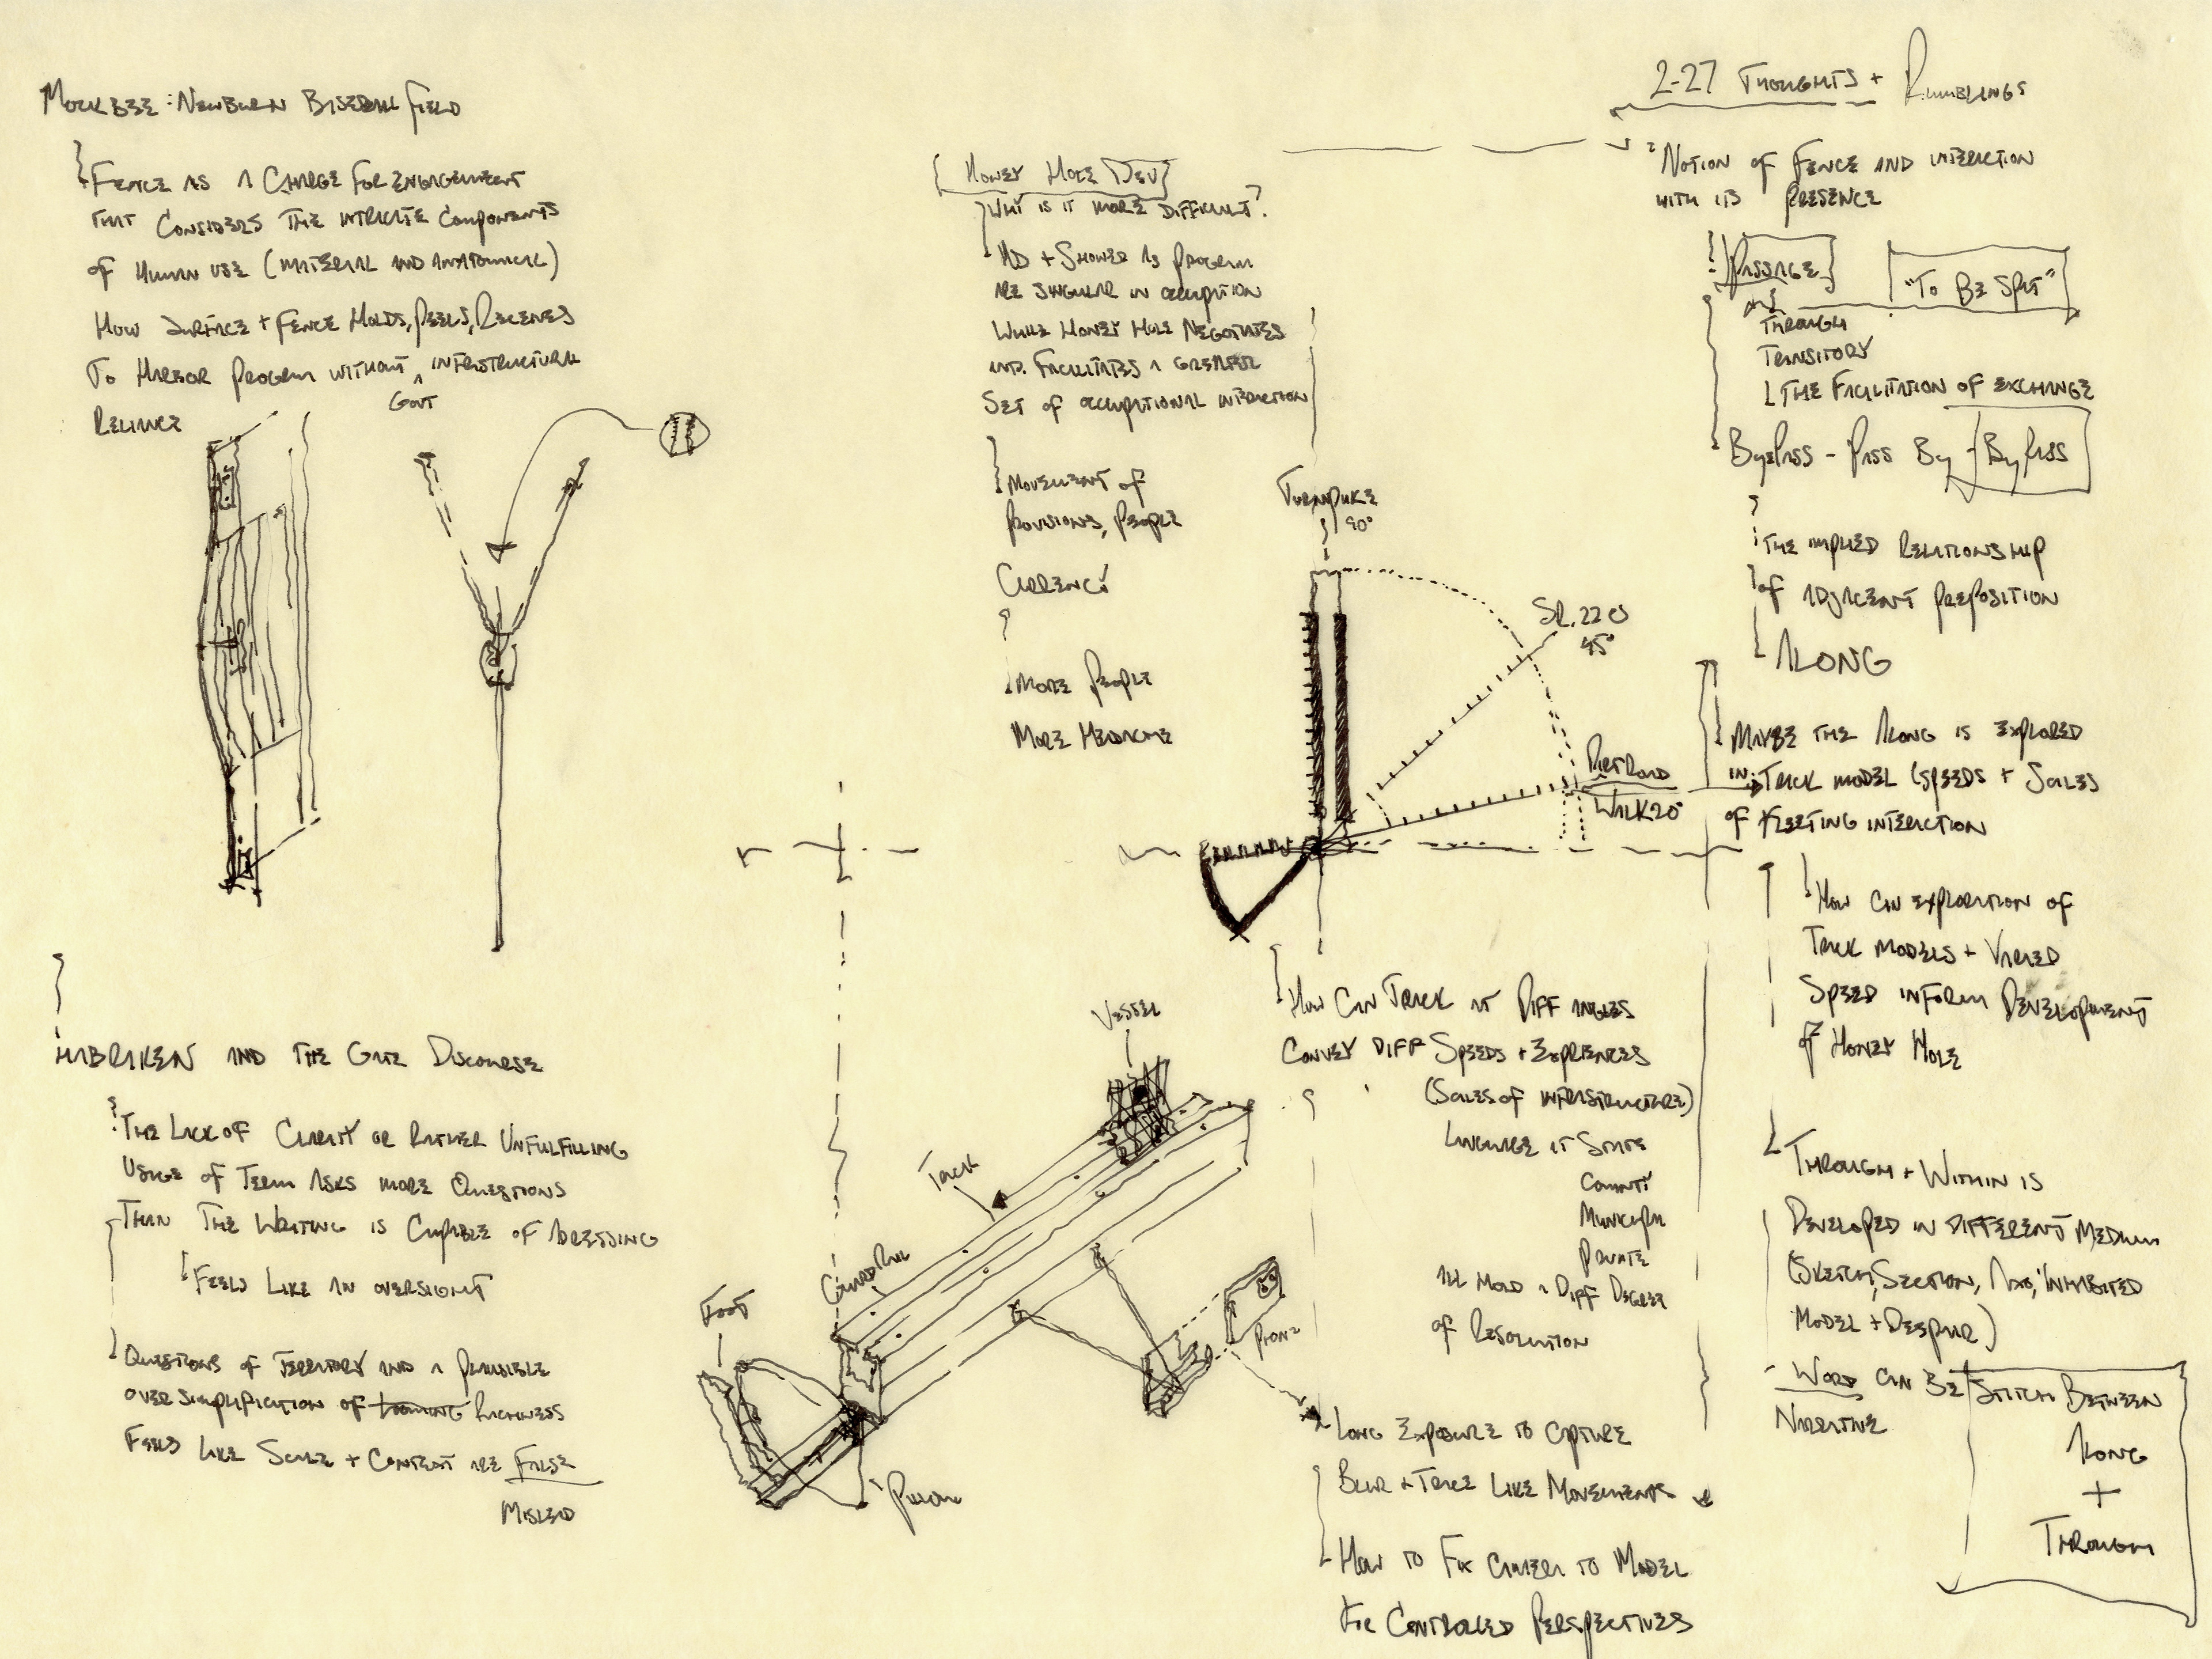 2-27 Thoughts + Rumblings
Mockbee: Newburn Baseball Field
Fence as a Charge for engagement
that considers the intricate components
of human use (material and anatomical)
How surface + fence molds, peels, recenes
to harbor program without ^ infrastructural
Govt
Reliance
Habraken and the Gate Discourse
The Lack of Clarity or rather unfulfilling
usage of term asks more questions
than the writing is capable of adressing
Feels like an oversight
Questions of territory and a plausible
over simplification of looming richness
Feels like scale + context are false
Mislead
Honey Hole Dev
Why is it more difficult?
AD + Shower as program
are singular in occupation
while Honey Hole negotiates
and facilitates a greater
set of occupational interaction
Movement of
provisions, people
Currency
More people
More medicine
Turnpike
90°
SR. 220
45°
Dirt Road
Walk 20°
How can track at diff angles
convey diff speeds + expriences
(Scales of infrastructure)
Language at State
County
Municipal
Private
All hold a diff degree
of resolution
Vessel
Track
Guard Rail
Foot
Phone
Long exposure to capture
blur + trace like movements
How to fix camera to model
for controlled perspectives
Notion of fence and interaction
with its presence
Passage
"To Be Spit"
and
Through
Transitory
The facilitation of exchange
ByePass - Pass By - ByPass
The implied relationship
of adjacent preposition
Along
Maybe the along is explored
in track model (speeds + scales
of fleeting interaction
How can exploration of
track models + varied
speed inform development
of Honey Hole
Through + within is
developed in different medium
(Sketch, section, axo, inhabited
model +
Word can be stitch between
narrative
Along
+
Through